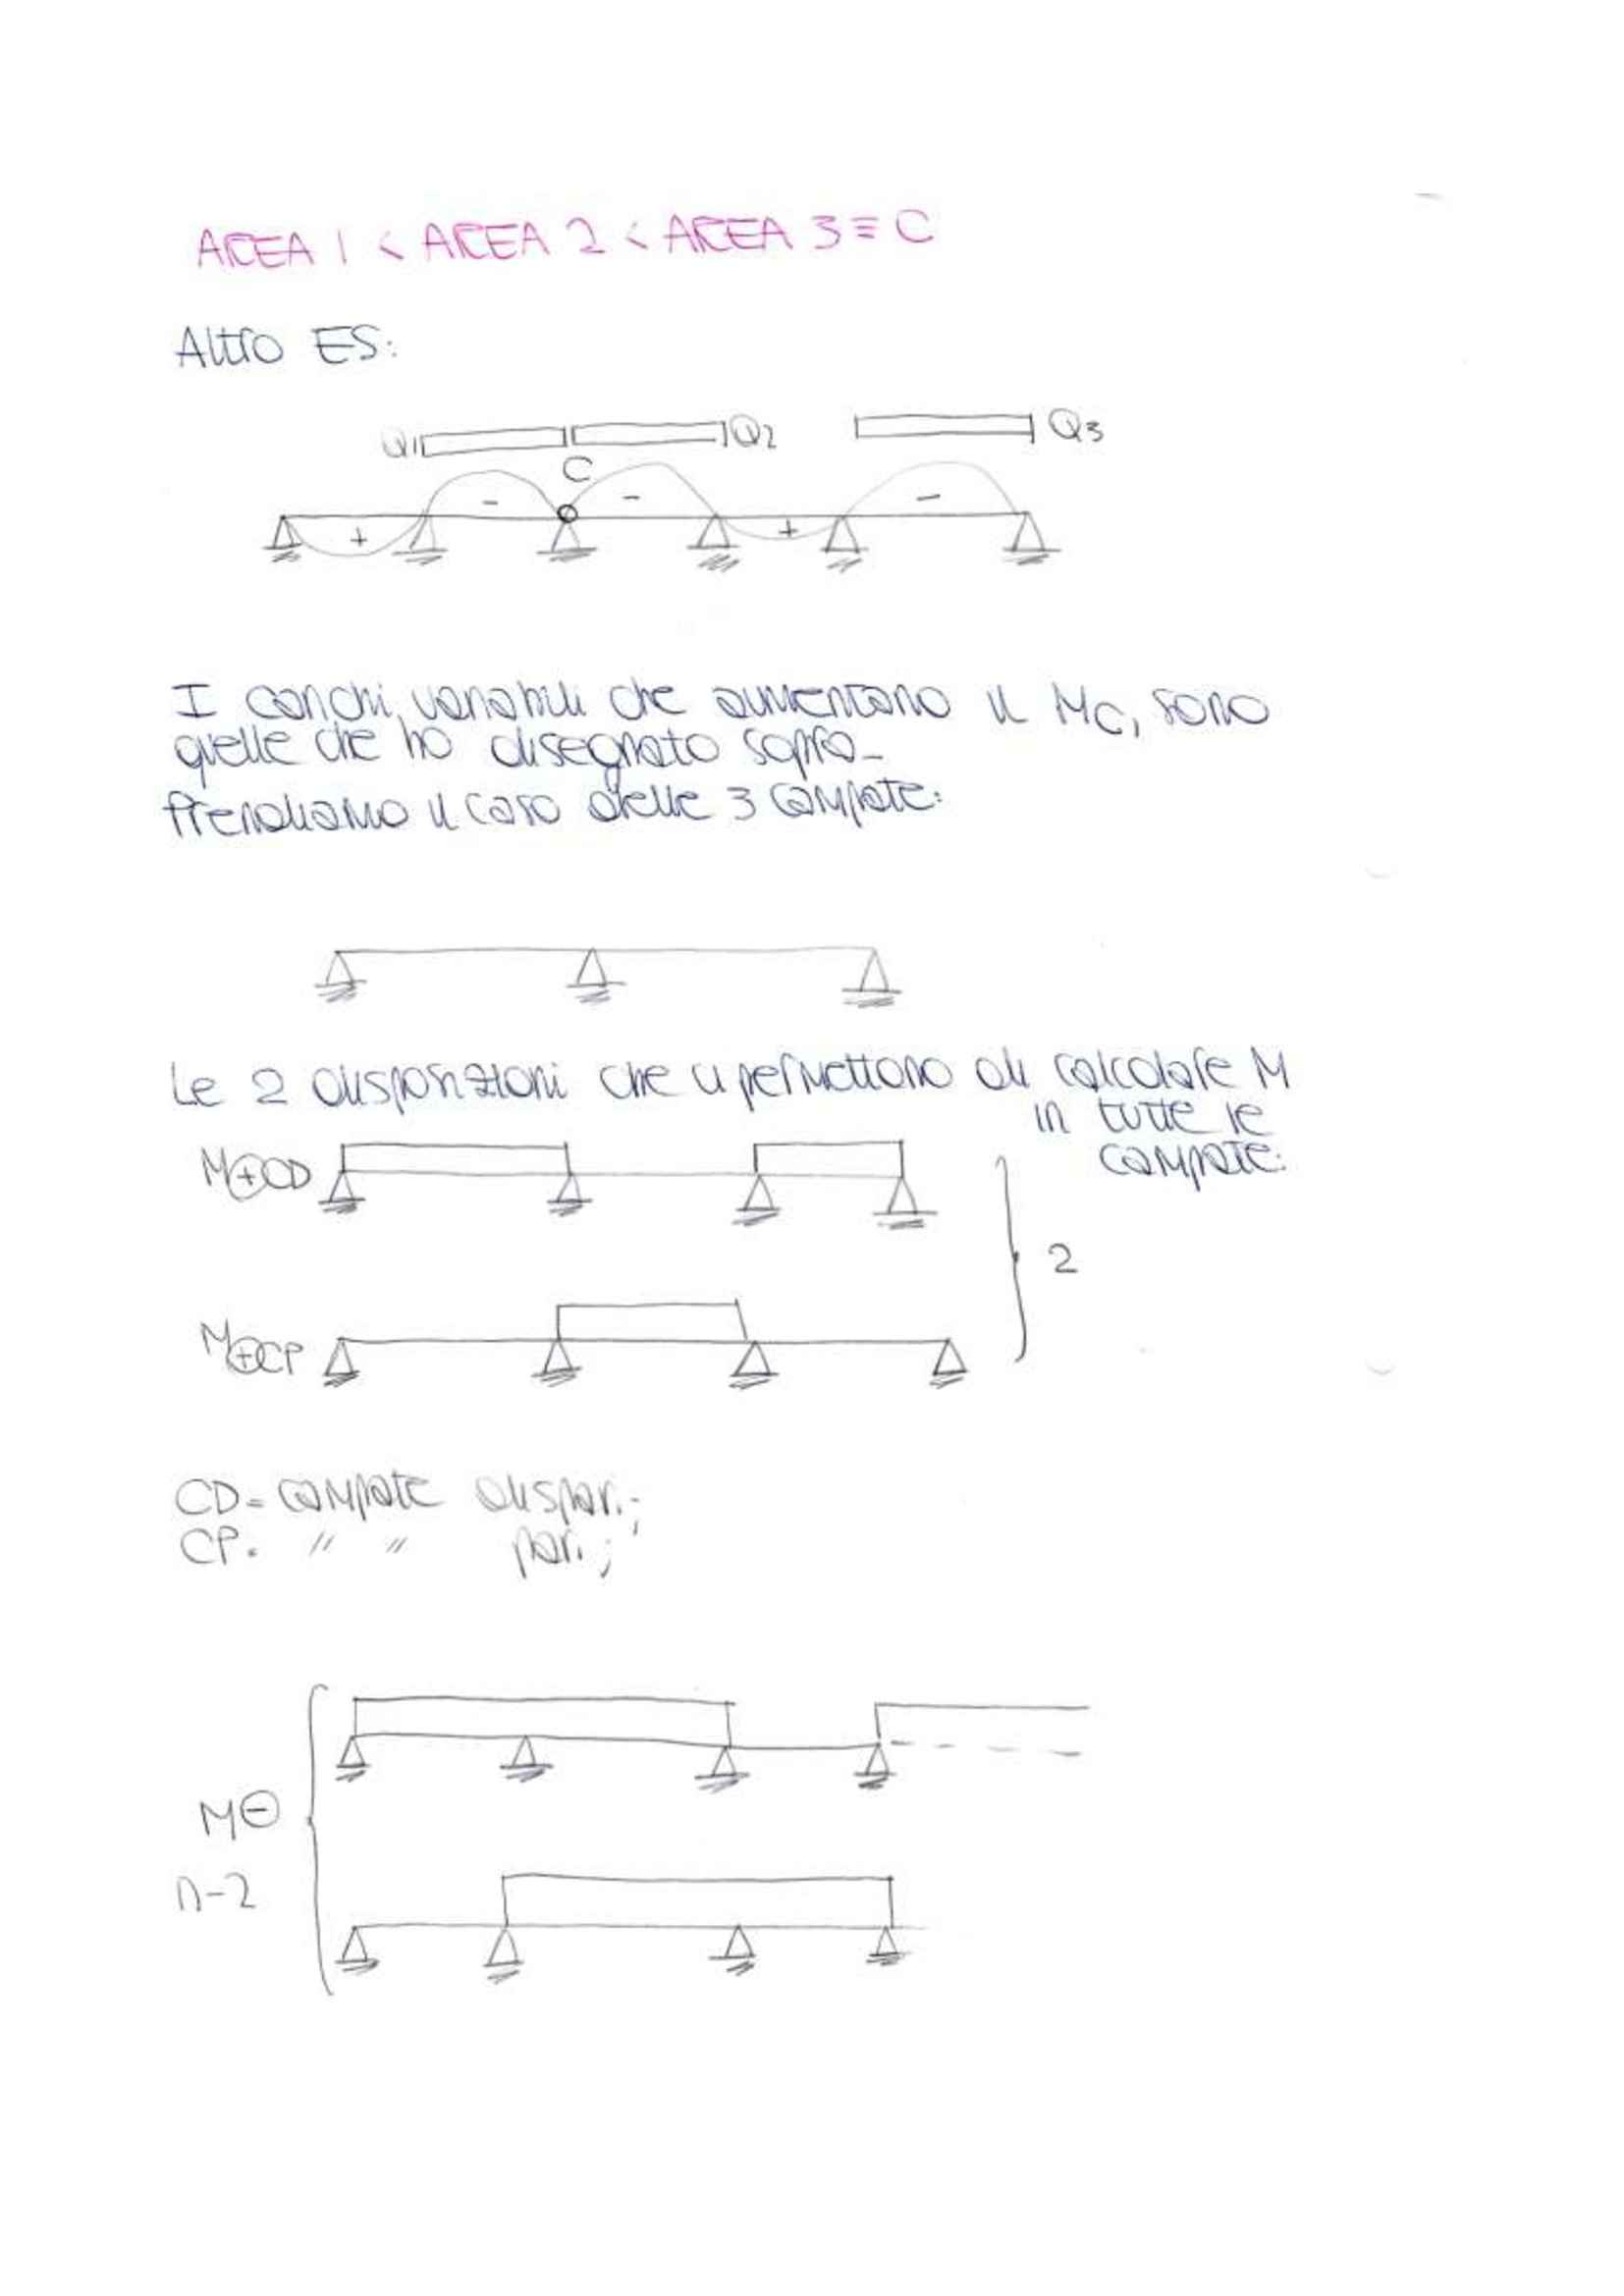 AREA 1 < AREA 2 < AREA 3 ≡ C
Altro ES:
Q1 Q2 Q3
C
- - -
+ +
I carichi, variabili che aumentano il Mc, sono
quelle che ho disegnato sopra_
Prendiamo il caso delle 3 campate:
Le 2 disposizioni che ci permettono di calcolare M
in tutte le
campate:
M⊕CD
2
M⊕CP
CD= campate dispari;
CP= " " pari;
M⊖
n-2